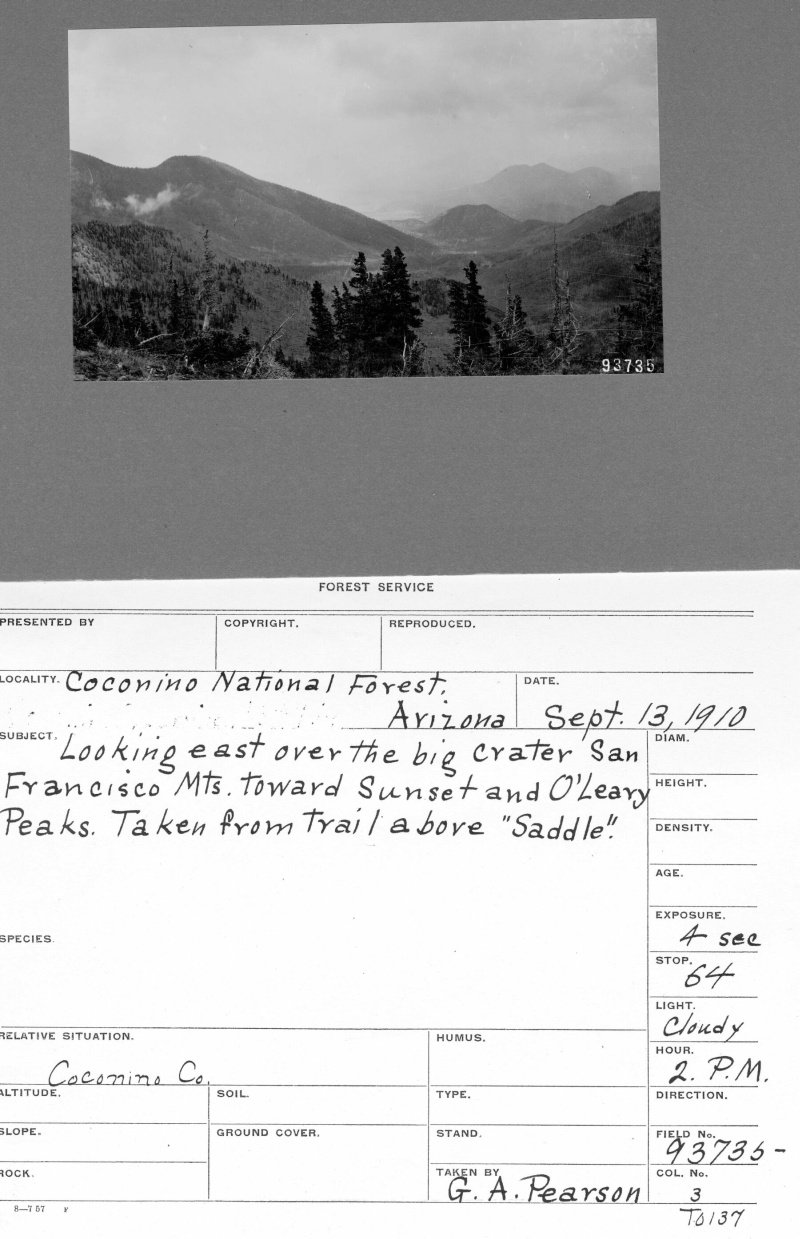 93735
FOREST SERVICE
PRESENTED BY
COPYRIGHT.
REPRODUCED.
LOCALITY. Coconino National Forest.
Arizona
DATE.
Sept. 13, 1910
SUBJECT. Looking east over the big crater San
Francisco Mts. toward Sunset and O'Leary
Peaks. Taken from trail above "Saddle".
DIAM.
HEIGHT.
DENSITY.
AGE.
SPECIES.
EXPOSURE.
4 sec
STOP.
64
LIGHT.
Cloudy
HOUR.
2. P.M.
RELATIVE SITUATION.
Coconino Co.
HUMUS.
ALTITUDE.
SOIL.
TYPE.
DIRECTION.
SLOPE.
GROUND COVER.
STAND.
FIELD No.
93735-
ROCK.
TAKEN BY
G. A. Pearson
COL. No.
3
8—757 F
T0137